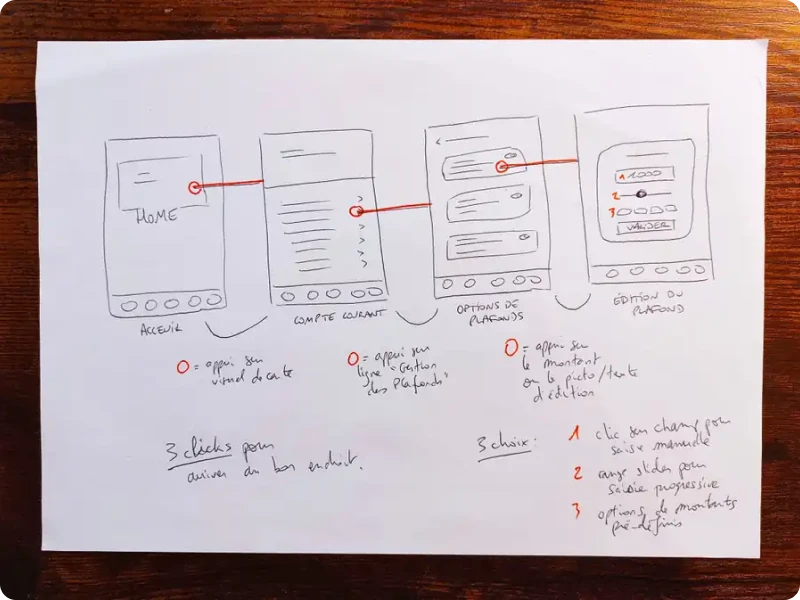 HOME
1 1000
2
3
VALIDER
ACCEUIL
COMPTE COURANT
OPTIONS DE
PLAFONDS
ÉDITION DU
PLAFOND
= appui sur
visuel de carte
= appui sur
ligne "Gestion
des Plafonds"
= appui sur
le montant
ou le picto/texte
d'édition
3 clicks pour
arriver au bon endroit.
3 choix:
1 clic sur champ pour
saisie manuelle
2 range slider pour
saisie progressive
3 options de montants
pré-définis